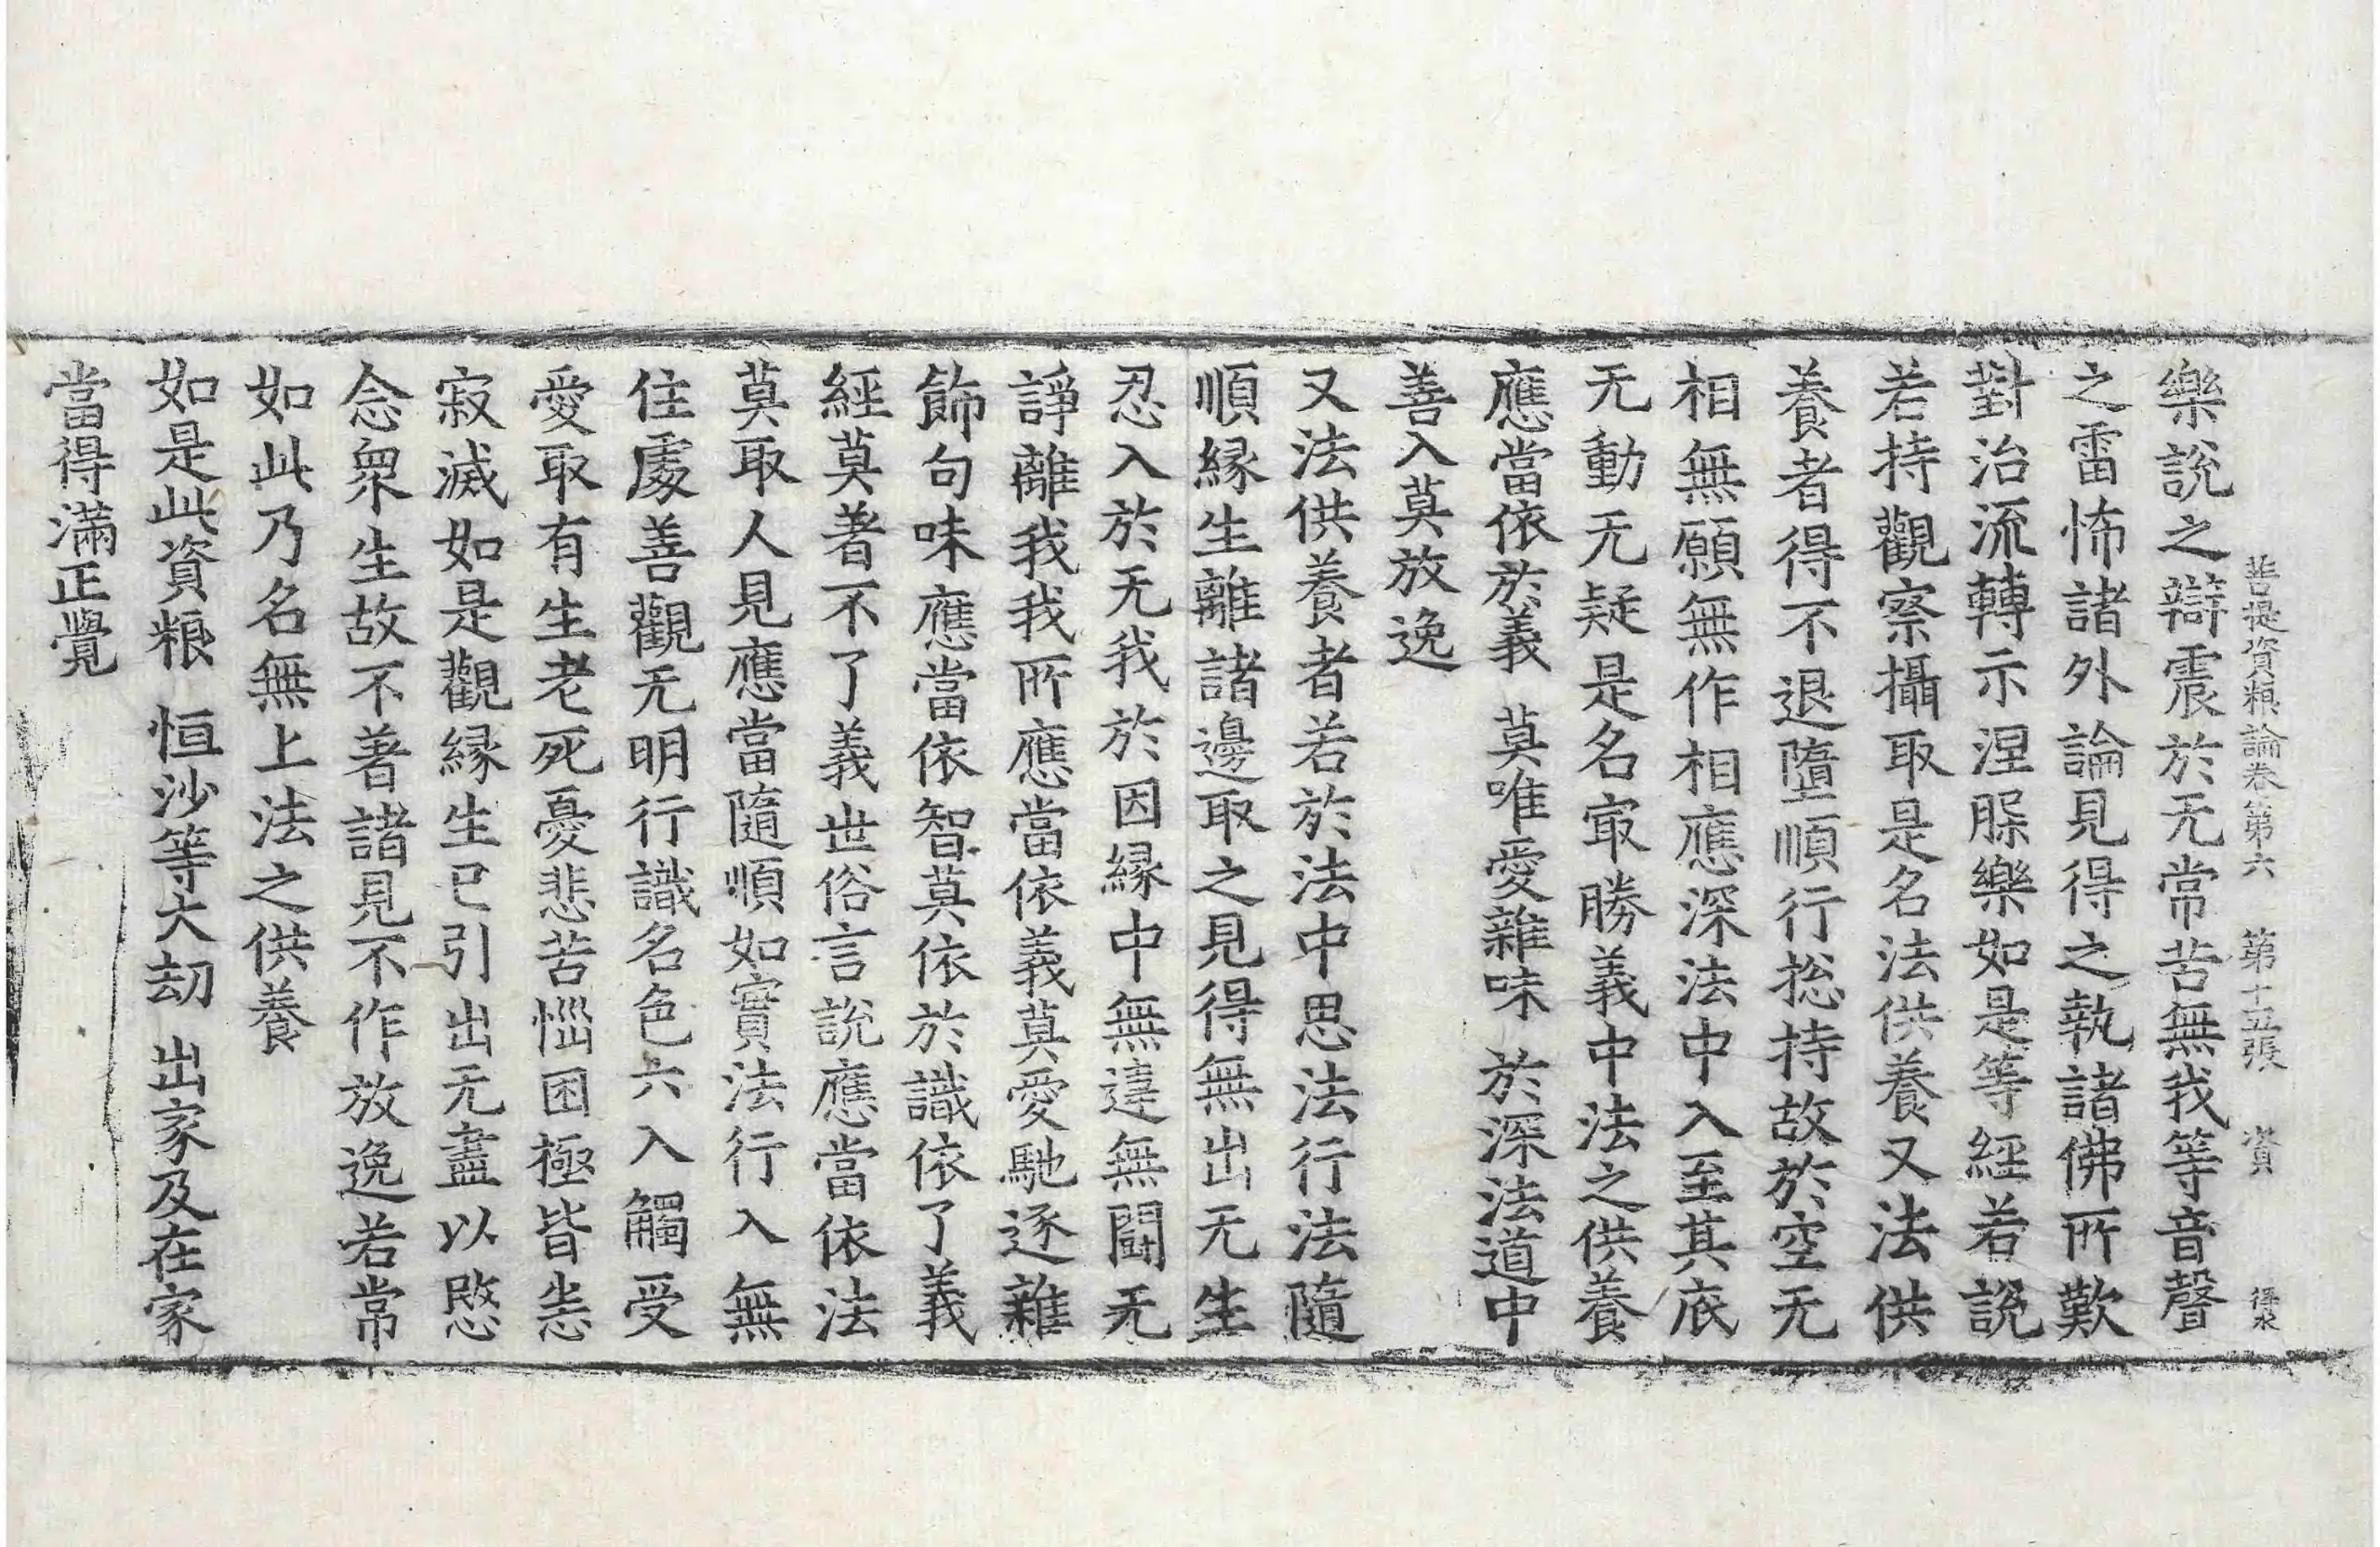 菩提資粮論卷第六 第十五張 資 得水
樂說之辯震於无常苦無我等音聲
之雷怖諸外論見得之執諸佛所歎
對治流轉示涅脲樂如是等經若說
若持觀察攝取是名法供養又法供
養者得不退墮順行捴持故於空无
相無願無作相應深法中入至其底
无動无疑是名㝡勝義中法之供養
應當依於義 莫唯愛雜味 於深法道中
善入莫放逸
又法供養者若於法中思法行法隨
順縁生離諸邊取之見得無出无生
忍入於无我於因縁中無違無鬪无
諍離我我所應當依義莫愛馳逐雜
飾句味應當依智莫依於識依了義
經莫著不了義世俗言說應當依法
莫取人見應當隨順如實法行入無
住處善觀无明行識名色六入觸受
愛取有生老死憂悲苦惱困極皆恚
寂滅如是觀縁生已引出无盡以愍
念衆生故不著諸見不作放逸若常
如此乃名無上法之供養
如是此資粮 恒沙等大劫 出家及在家
當得滿正覺